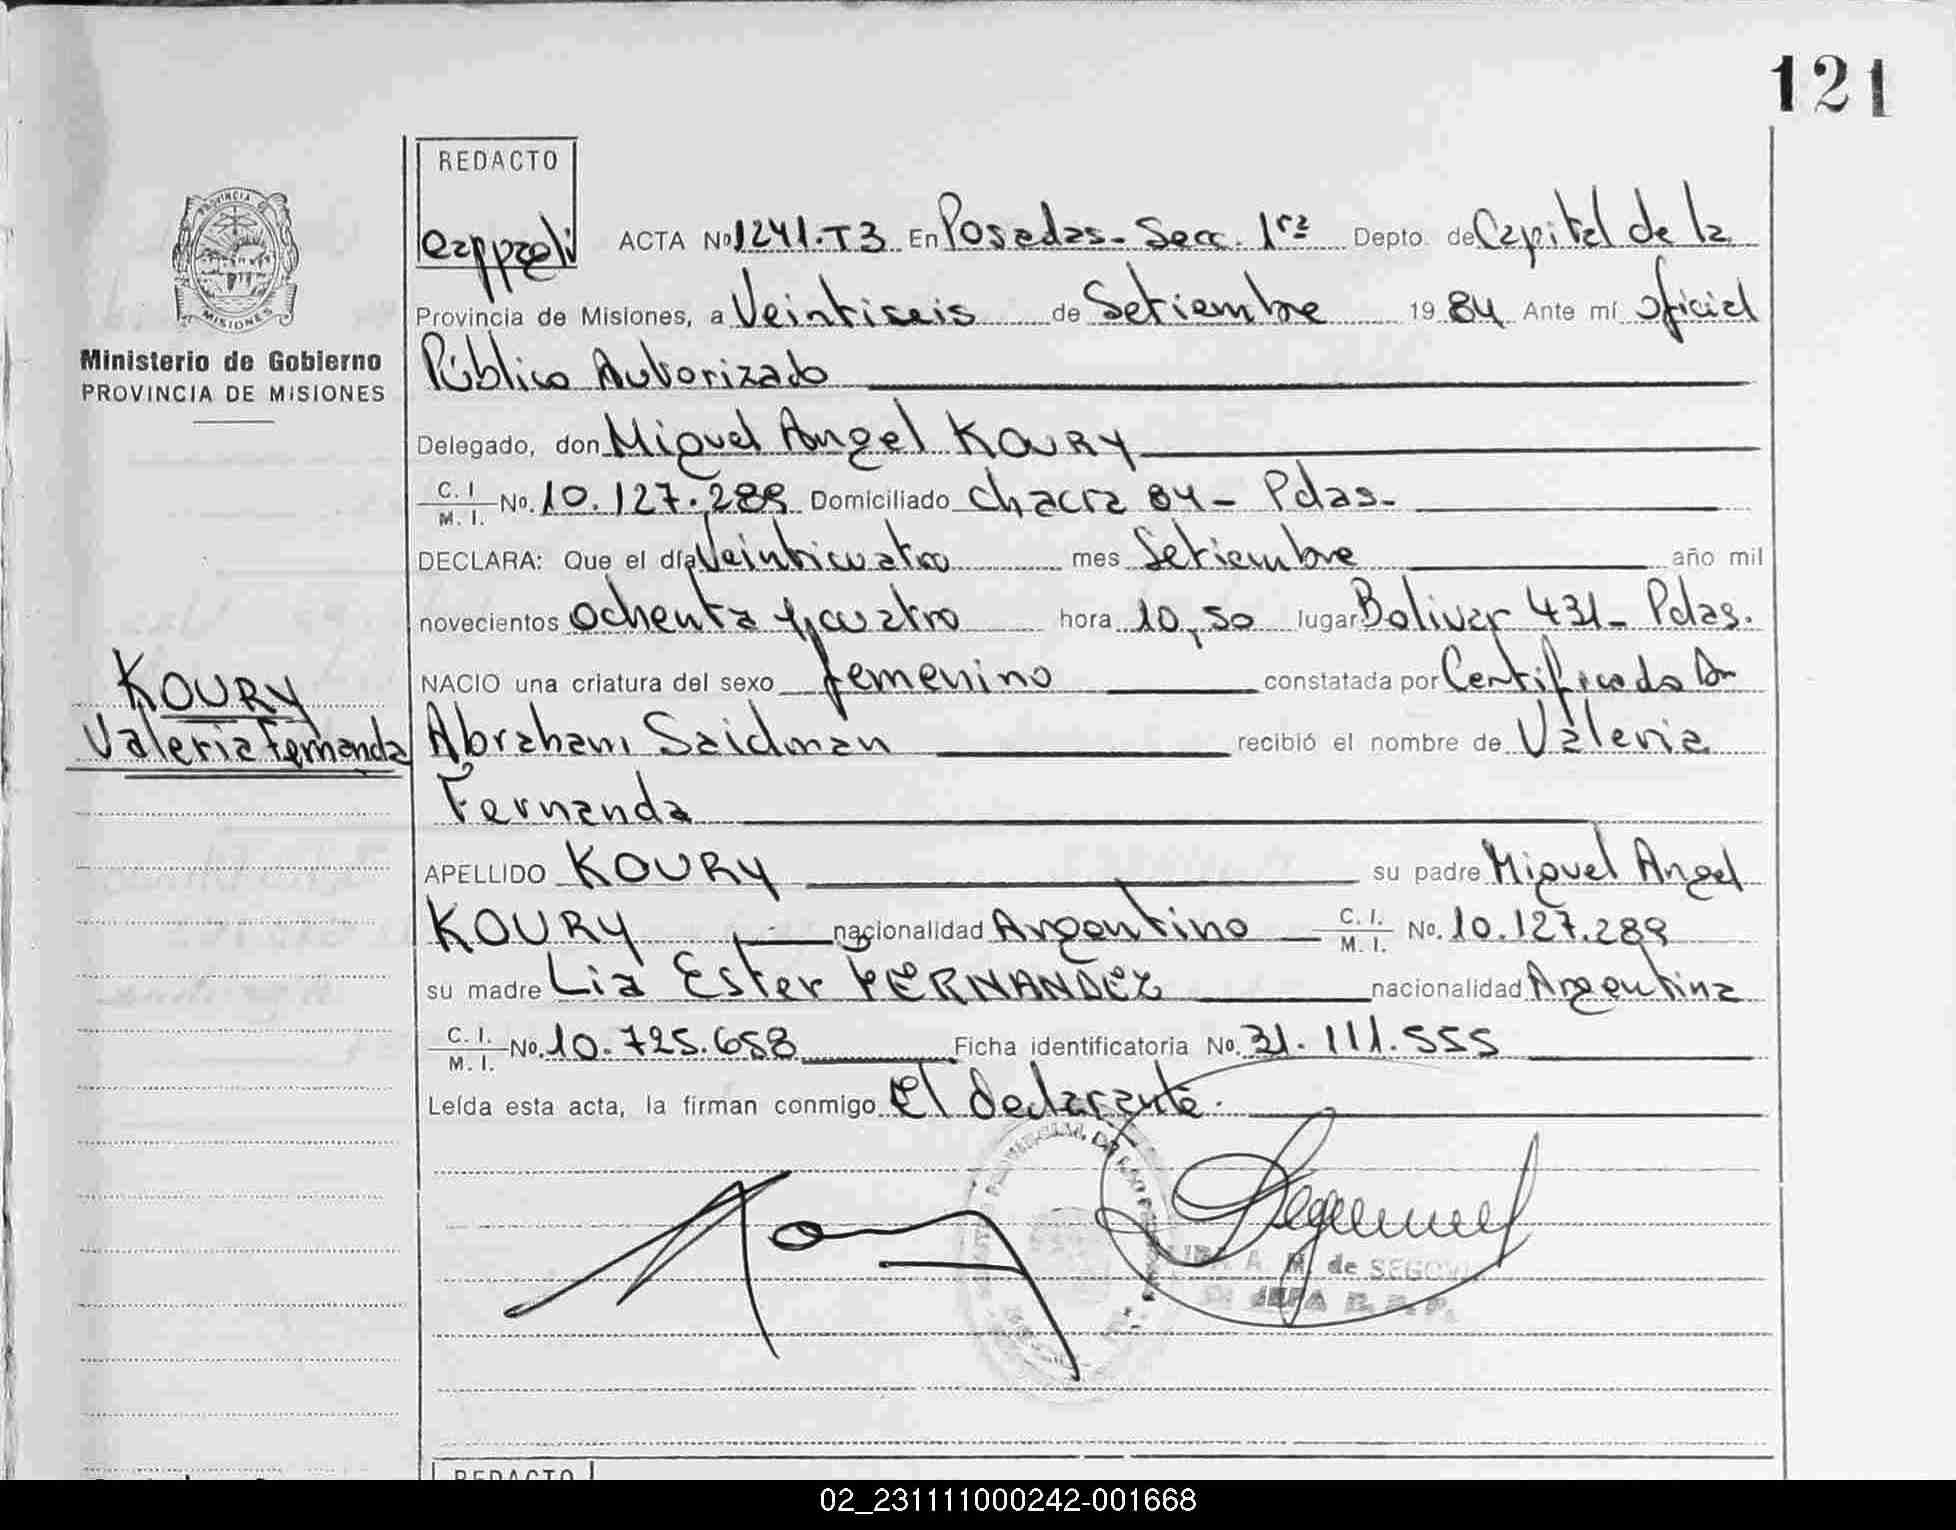 121
REDACTO
PROVINCIA DE
MISIONES
ACTA Nº 1241-T3 En Posadas- Secc. 1ra Depto. de Capital de la
Provincia de Misiones, a Veintiseis de Setiembre 1984 Ante mí oficial
Ministerio de Gobierno
PROVINCIA DE MISIONES
Público Autorizado
Delegado, don Miguel Angel KOURY
C. I. / M. I. No. 10.127.289 Domiciliado chacra 84- Pdas-
DECLARA: Que el día Veinticuatro mes Setiembre año mil
novecientos ochenta y cuatro hora 10,50 lugar Bolivar 431- Pdas.
NACIO una criatura del sexo femenino constatada por Certificado Dr
KOURY
Valeria Fernanda
Abraham Saidman recibió el nombre de Valeria
Fernanda
APELLIDO KOURY su padre Miguel Angel
KOURY nacionalidad Argentino C. I. / M. I. No. 10.127.289
su madre Lia Ester FERNANDEZ nacionalidad Argentina
C. I. / M. I. No. 10.725.658 Ficha identificatoria No. 31.111.555
Leída esta acta, la firman conmigo El declarante.
A M. de SEGOV
JEFA
REDACTO
02_231111000242-001668